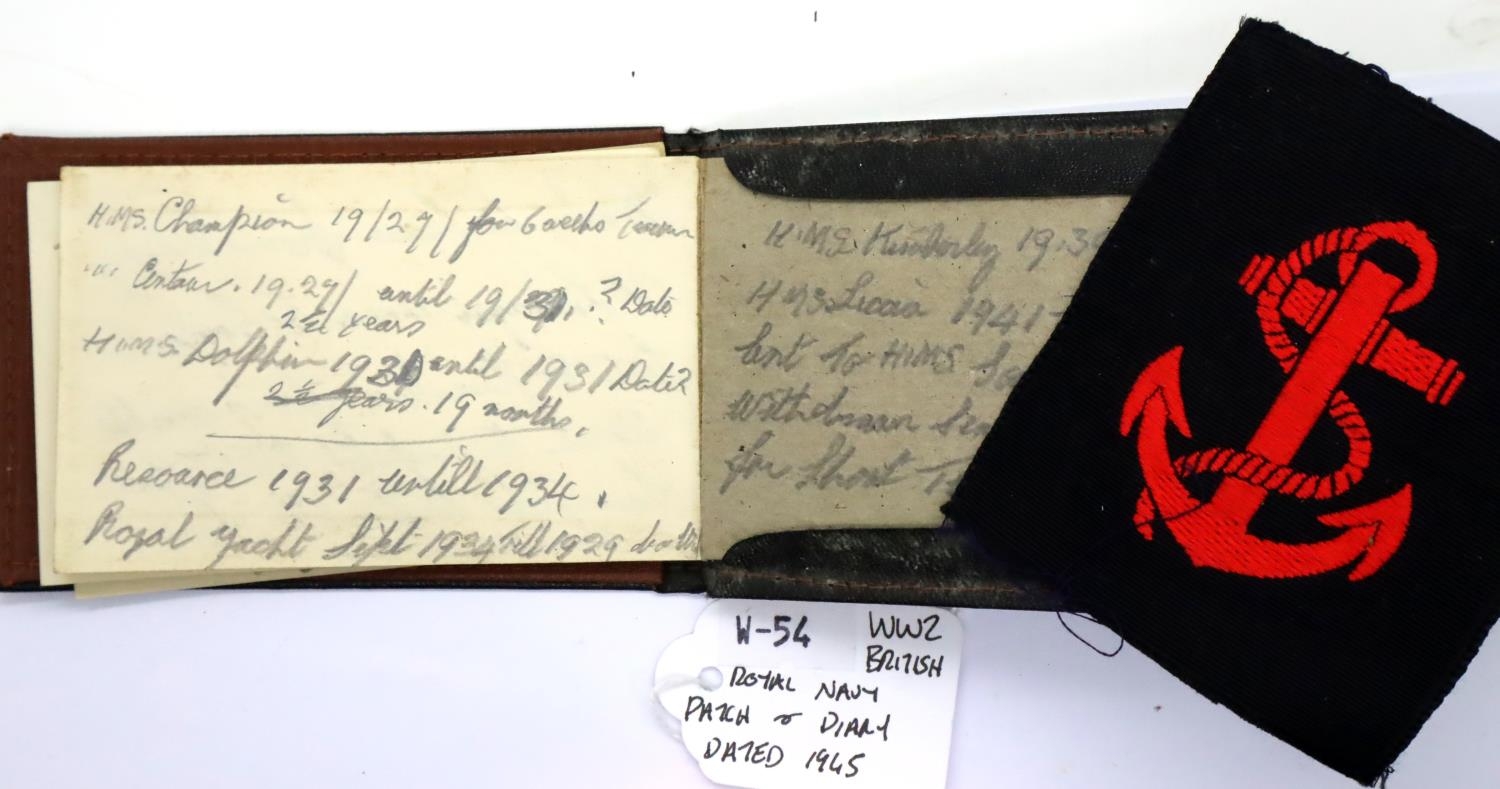 H.M.S. Champion 19/27/ for 6 weeks
"" Centaur. 19.29/ until 19/31. ? Date
2½ years
H.M.S. Dolphin 1931 until 1931 Date?
2½ years. 19 months.
Resource 1931 untill 1934.
Royal Yacht Sept 1934 till 1929
H.M.S. Kimberley 19.39
H M S 1941
Sent To H.M.S
Withdrawn
for Short
W-54
WW2
BRITISH
ROYAL NAVY
PATCH & DIARY
DATED 1945